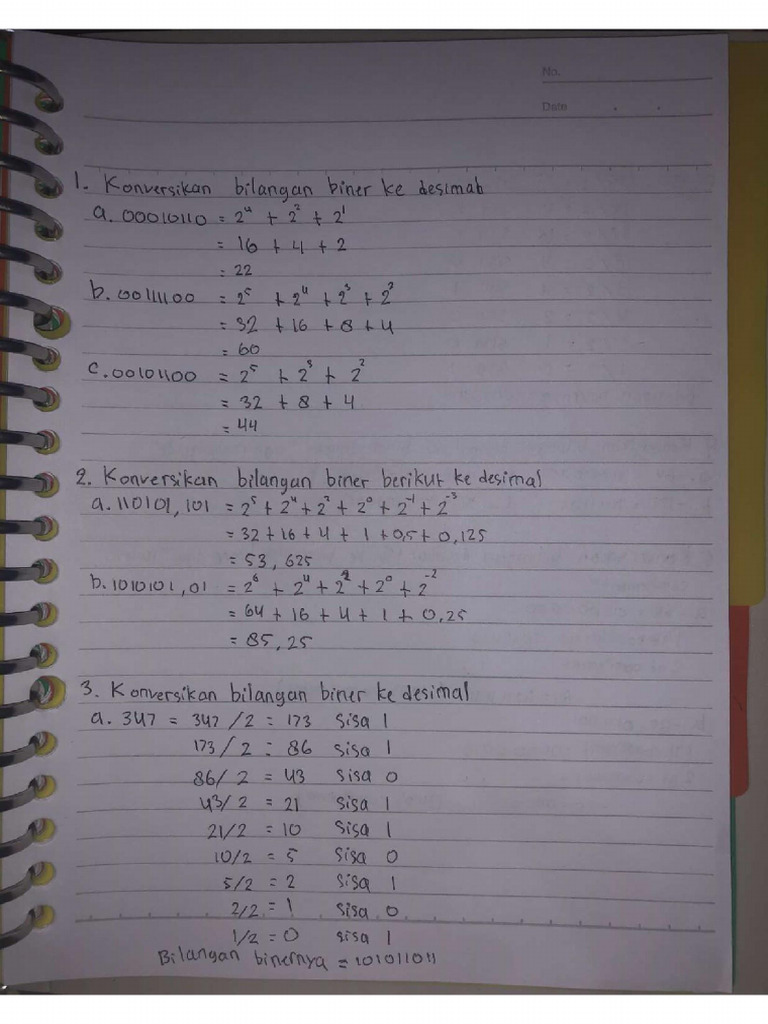 No.
Date
1. Konversikan bilangan biner ke desimal
a. 00010110 = 2⁴ + 2² + 2¹
= 16 + 4 + 2
= 22
b. 00111100 = 2⁵ + 2⁴ + 2³ + 2²
= 32 + 16 + 8 + 4
= 60
c. 00101100 = 2⁵ + 2³ + 2²
= 32 + 8 + 4
= 44
2. Konversikan bilangan biner berikut ke desimal
a. 110101,101 = 2⁵ + 2⁴ + 2² + 2⁰ + 2⁻¹ + 2⁻³
= 32 + 16 + 4 + 1 + 0,5 + 0,125
= 53,625
b. 1010101,01 = 2⁶ + 2⁴ + 2² + 2⁰ + 2⁻²
= 64 + 16 + 4 + 1 + 0,25
= 85,25
3. Konversikan bilangan biner ke desimal
a. 347 = 347 / 2 = 173 sisa 1
173 / 2 = 86 sisa 1
86 / 2 = 43 sisa 0
43 / 2 = 21 sisa 1
21/2 = 10 sisa 1
10/2 = 5 sisa 0
5/2 = 2 sisa 1
2/2 = 1 sisa 0
1/2 = 0 sisa 1
Bilangan binernya = 101011011